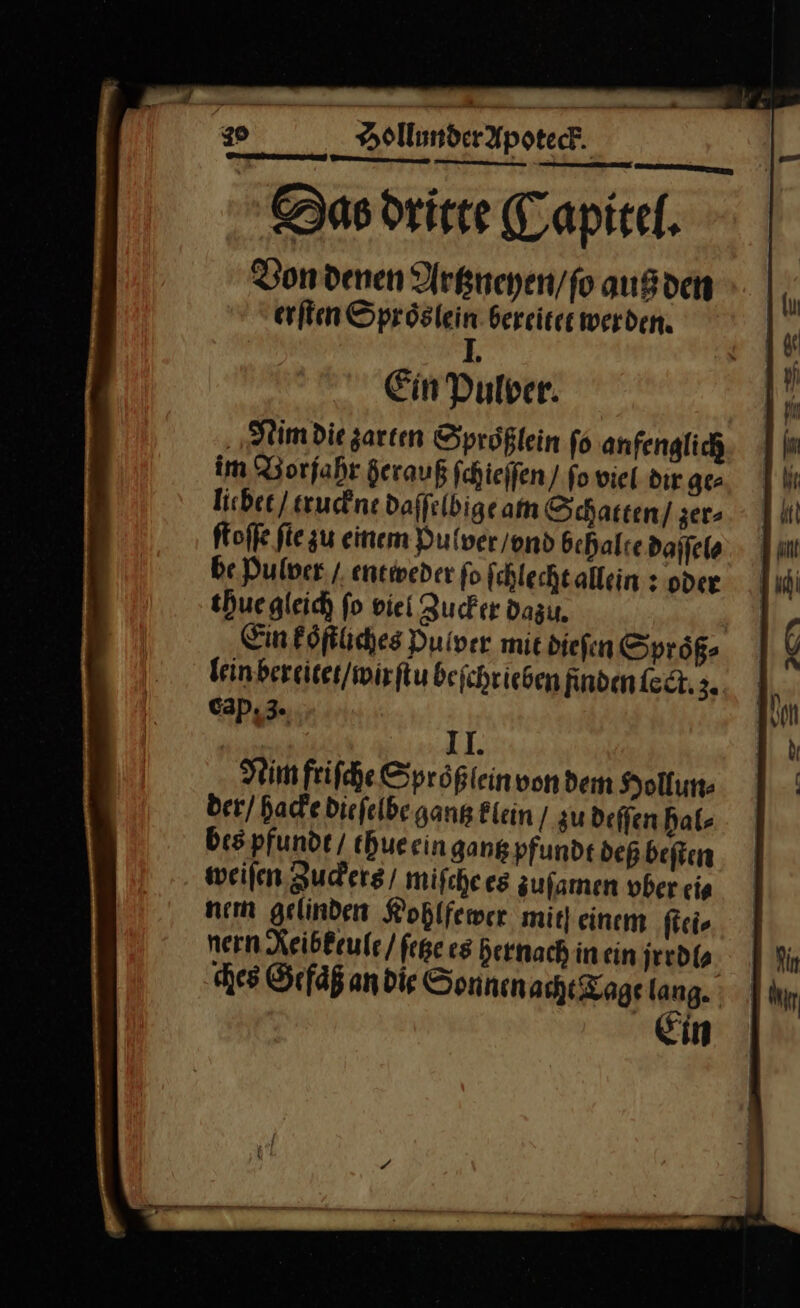 30 HollunderApoteck.
Das dritte Capitel.
Von denen Artzneyen/ ſo auß den
erſten Sproͤslein bereitet werden.
I.
Ein Pulver.
Nim die zarten Sproͤßlein ſo anfenglich
im Vorjahr herauß ſchieſſen/ ſo viel dir ge⸗
liebet/ truckne daſſelbige am Schatten/ zer⸗
ſtoſſe ſie zu einem Pulver/ vnd behalte daſſel⸗
be Pulver/ entweder ſo ſchlecht allein : oder
thue gleich ſo viel Zucker dazu.
Ein koͤſtliches Pulver mit dieſen Sproͤß⸗
lein bereitet/ wirſtu beſchrieben finden ſect. 3.
cap. 3.
II.
Nim friſche Sproͤßlein von dem Hollun⸗
der/ hacke dieſelbe gantz klein/ zu deſſen hal⸗
bes pfundt/ thue ein gantz pfundt deß beſten
weiſen Zuckers/ miſche es zuſamen vber ei⸗
nem gelinden Kohlfewer mit einem ſtei⸗
nern Reibkeule/ ſetze es hernach in ein jrrdl⸗
ches Gefaͤß an die Sonnen acht Tage lang.
Ein